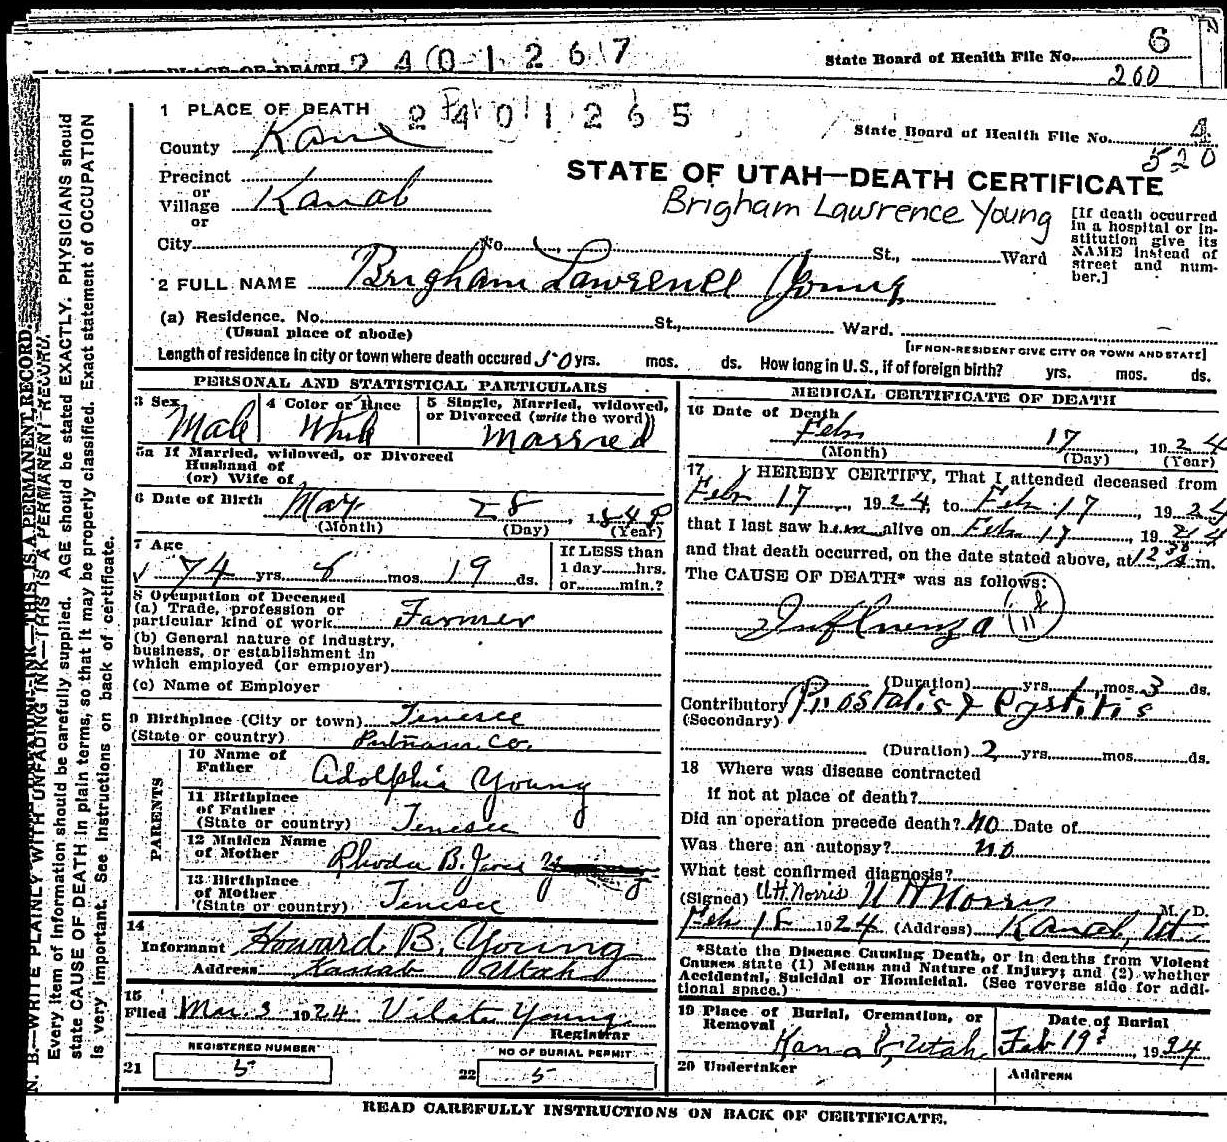 State Board of Health File No. 6
2 4 0 1 2 6 7
260
1 PLACE OF DEATH
2 4 0 1 2 6 5
State Board of Health File No. 4
520
County Kane
STATE OF UTAH—DEATH CERTIFICATE
Precinct
or
Village Kanab
or
Brigham Lawrence Young
[If death occurred in a hospital or institution give its NAME instead of street and number.]
City No. St., Ward
2 FULL NAME Brigham Lawrence Young
(a) Residence. No. St., Ward.
(Usual place of abode)
[IF NON-RESIDENT GIVE CITY OR TOWN AND STATE]
Length of residence in city or town where death occured 50 yrs. mos. ds. How long in U. S., if of foreign birth? yrs. mos. ds.
PERSONAL AND STATISTICAL PARTICULARS
3 Sex Male
4 Color or Race White
5 Single, Married, widowed, or Divorced (write the word) Married
5a If Married, widowed, or Divorced
Husband of
(or) Wife of
6 Date of Birth May 28, 18
(Month) (Day) (Year)
7 Age
74 yrs. 8 mos. 19 ds.
If LESS than
1 day hrs.
or min.?
8 Occupation of Deceased
(a) Trade, profession or
particular kind of work Farmer
(b) General nature of industry,
business, or establishment in
which employed (or employer)
(c) Name of Employer
9 Birthplace (City or town) Tenesee
(State or country) Putnam Co.
PARENTS
10 Name of
Father Adolphia Young
11 Birthplace
of Father
(State or country) Tenesee
12 Maiden Name
of Mother Rhoda B. Jared
13 Birthplace
of Mother
(State or country) Tenesee
14
Informant Howard B. Young
Address Kanab Utah
15
Filed Mar 3 1924 Vilate Young
Registrar
REGISTERED NUMBER
21 5
NO OF BURIAL PERMIT
22 5
MEDICAL CERTIFICATE OF DEATH
16 Date of Death
Feb 17 1924
(Month) (Day) (Year)
17 I HEREBY CERTIFY, That I attended deceased from
Feb 17, 1924, to Feb 17, 1924
that I last saw him alive on Feb 17, 1924
and that death occurred, on the date stated above, at 12 38 m.
The CAUSE OF DEATH* was as follows:
Influenza 11
(Duration) yrs. mos. 3 ds.
Contributory Prostatis & Cystitis
(Secondary)
(Duration) 2 yrs. mos. ds.
18 Where was disease contracted
if not at place of death?
Did an operation precede death? no Date of
Was there an autopsy? no
What test confirmed diagnosis?
(Signed) W.H. Norris W H Norris M. D.
Feb 18 1924 (Address) Kanab, Ut.
*State the Disease Causing Death, or in deaths from Violent
Causes state (1) Means and Nature of Injury; and (2) whether
Accidental, Suicidal or Homicidal. (See reverse side for addi-
tional space.)
19 Place of Burial, Cremation, or
Removal
Kanab, Utah
Date of Burial
Feb 19, 1924
20 Undertaker
Address
READ CAREFULLY INSTRUCTIONS ON BACK OF CERTIFICATE.
N. B.—WRITE PLAINLY WITH UNFADING INK—THIS IS A PERMANENT RECORD.
Every item of information should be carefully supplied. AGE should be stated EXACTLY. PHYSICIANS should
state CAUSE OF DEATH in plain terms, so that it may be properly classified. Exact statement of OCCUPATION
is very important. See instructions on back of certificate.